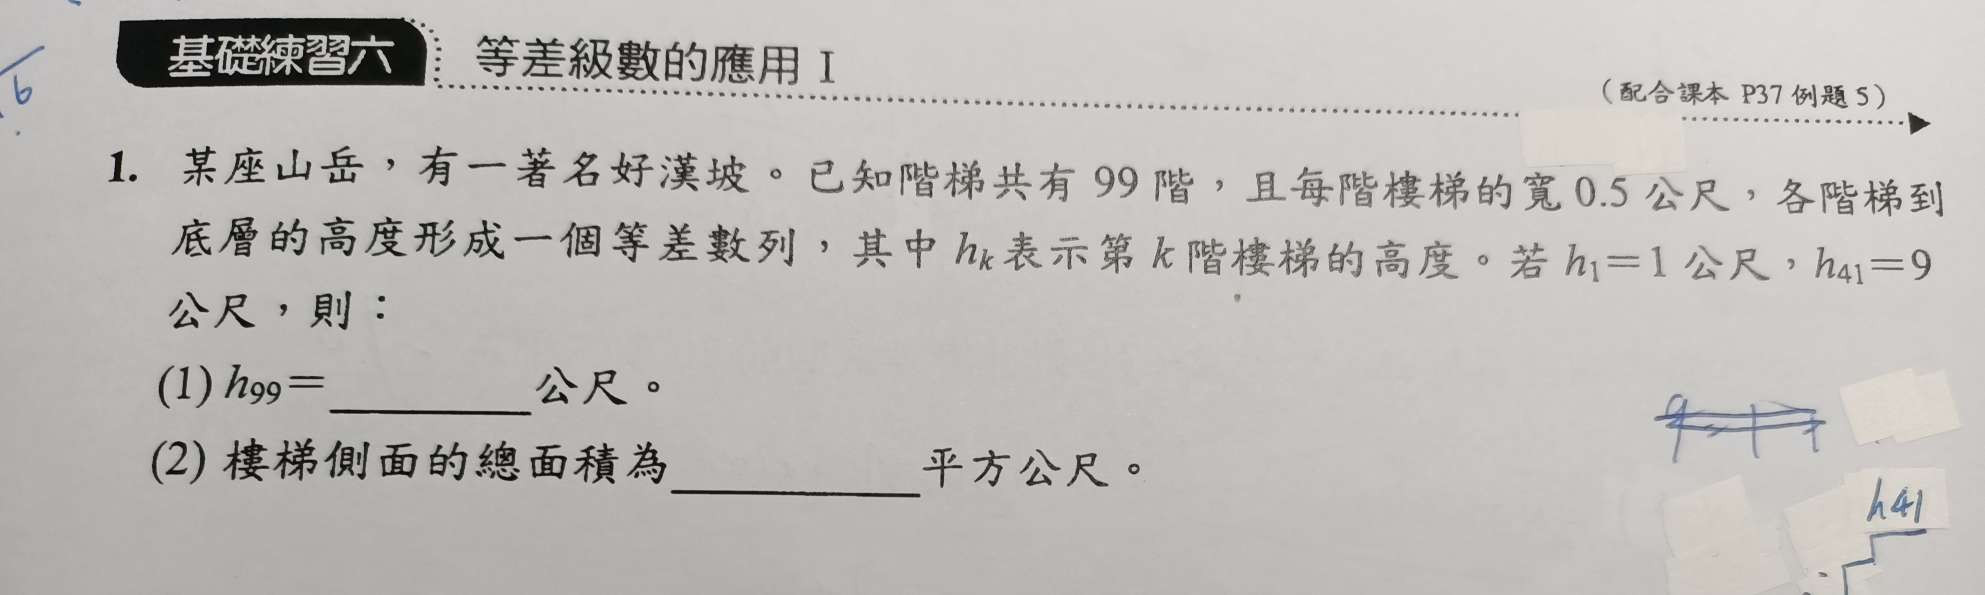 基礎練習六 等差級數的應用 I
(配合課本 P37 例題 5)
6
1. 某座山岳，有一著名好漢坡。已知階梯共有 99 階，且每階樓梯的寬 0.5 公尺，各階梯到
底層的高度形成一個等差數列，其中 hk 表示第 k 階樓梯的高度。若 h1=1 公尺，h41=9
公尺，則：
(1) h99=________公尺。
(2) 樓梯側面的總面積為________平方公尺。
h41